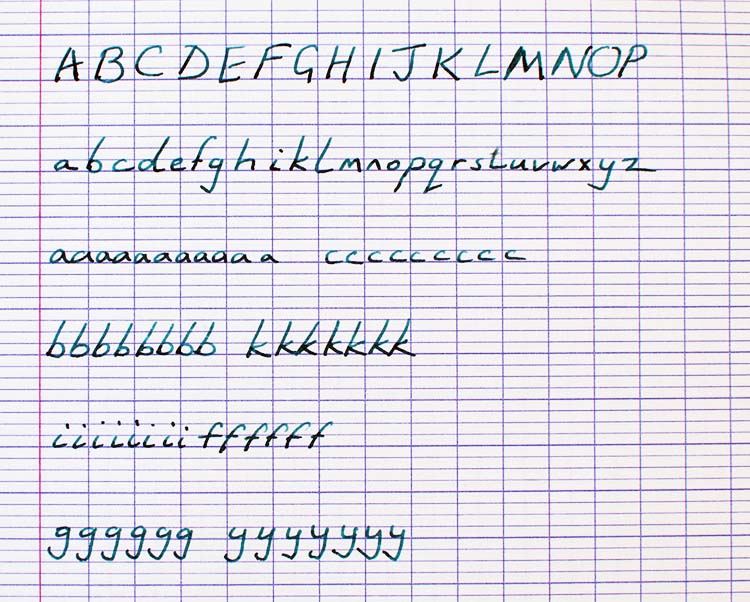 A B C D E F G H I J K L M N O P
a b c d e f g h i k l m n o p q r s t u v w x y z
aaaaaaaaaaa ccccccccc
bbbbbbbb kkkkkkk
iiiiiiii ffffff
gggggg yyyyyyy